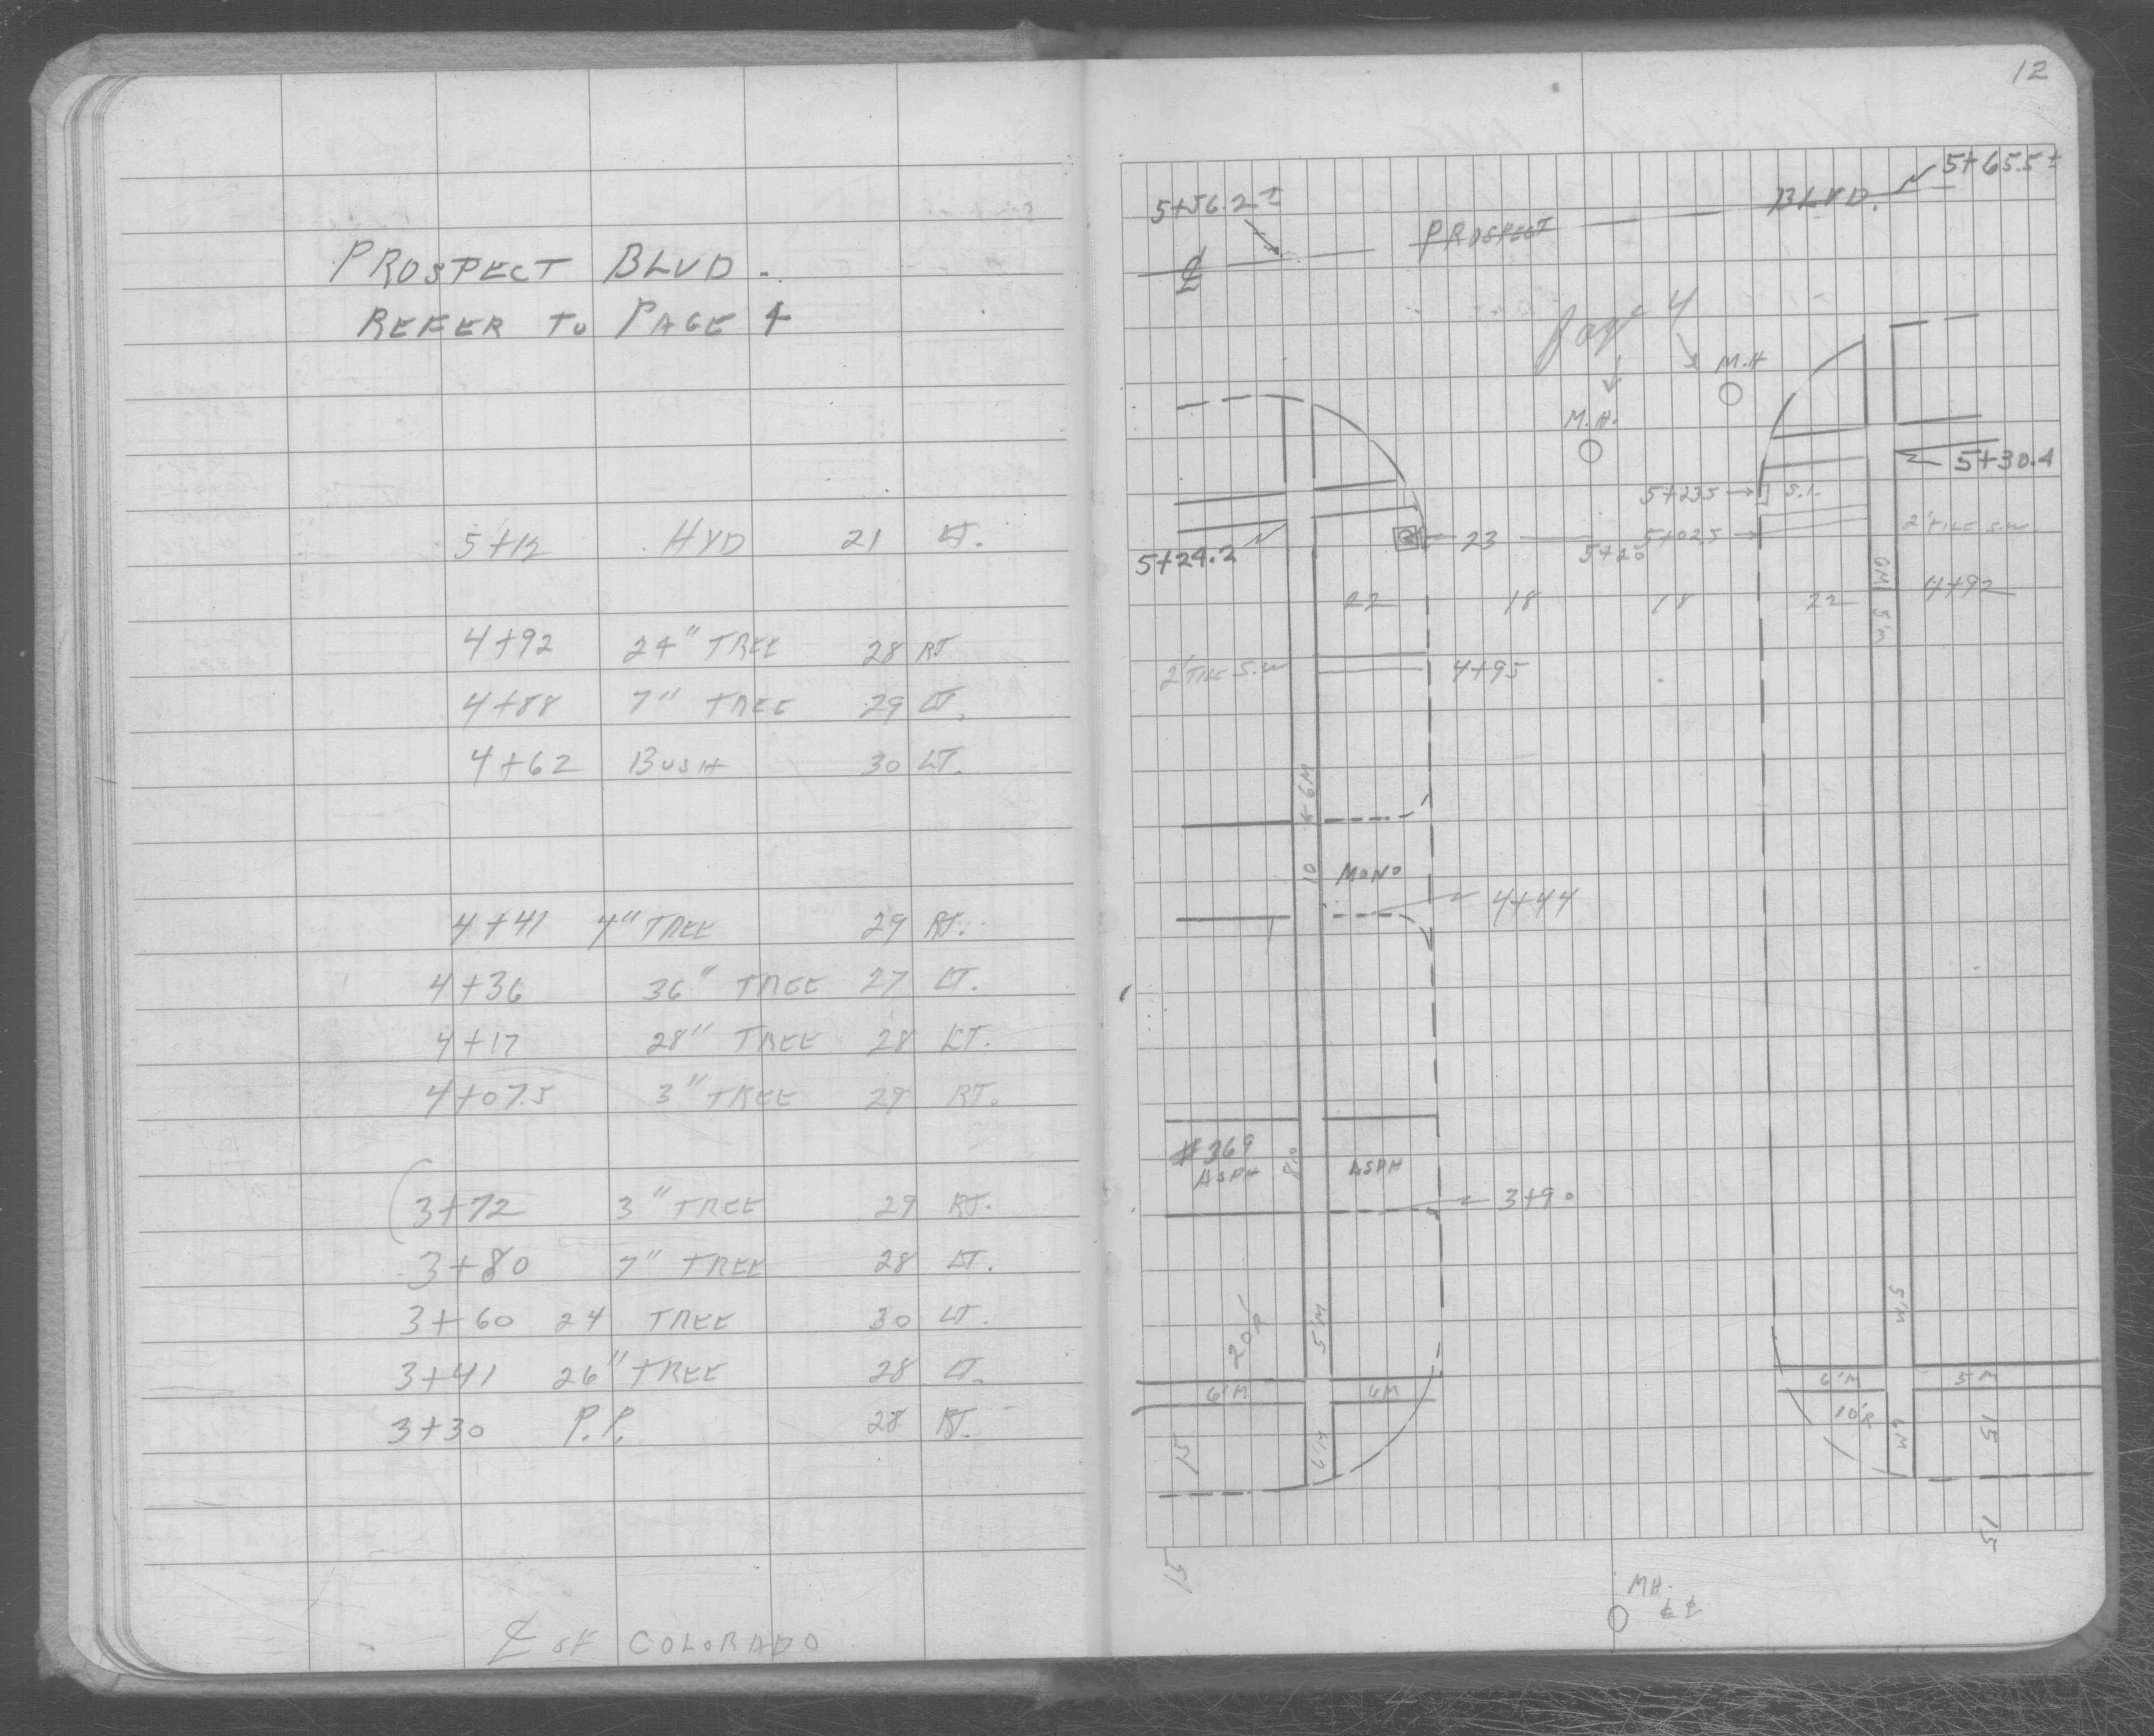 PROSPECT BLVD.
REFER TO PAGE 4
HYD 21 LT.
4+92 24" TREE 28 RT
4+88 7" TREE 29 LT.
4+62 BUSH 30 LT.
4+41 4" TREE 29 RT.
4+36 36" TREE 27 LT.
4+17 28" TREE 28 LT.
4+07.5 3" TREE 29 RT.
3+72 3" TREE 29 RT.
3+80 7" TREE 28 LT.
3+60 24 TREE 30 LT.
3+41 26" TREE 28 LT.
3+30 P.P. 28 RT.
℄ OF COLORADO
12
5+56.2±
5+65.5±
℄ PROSPECT BLVD.
Page 4
M.H
M.H.
5+30.4
5+23.5 S.I.
5+24.2
23
5+20
5+02.5
2' TILE S.W.
22 18 18 22
4+92
6M
5'M
2' TILE S.W
4+95
6M
10
MONO
4+44
#369
ASPH
8.0
ASPH
3+90
20'R
5'M
5'M
6'M
6M
6'M
5'M
10'R
15
6'M
6M
15
15
15
MH.